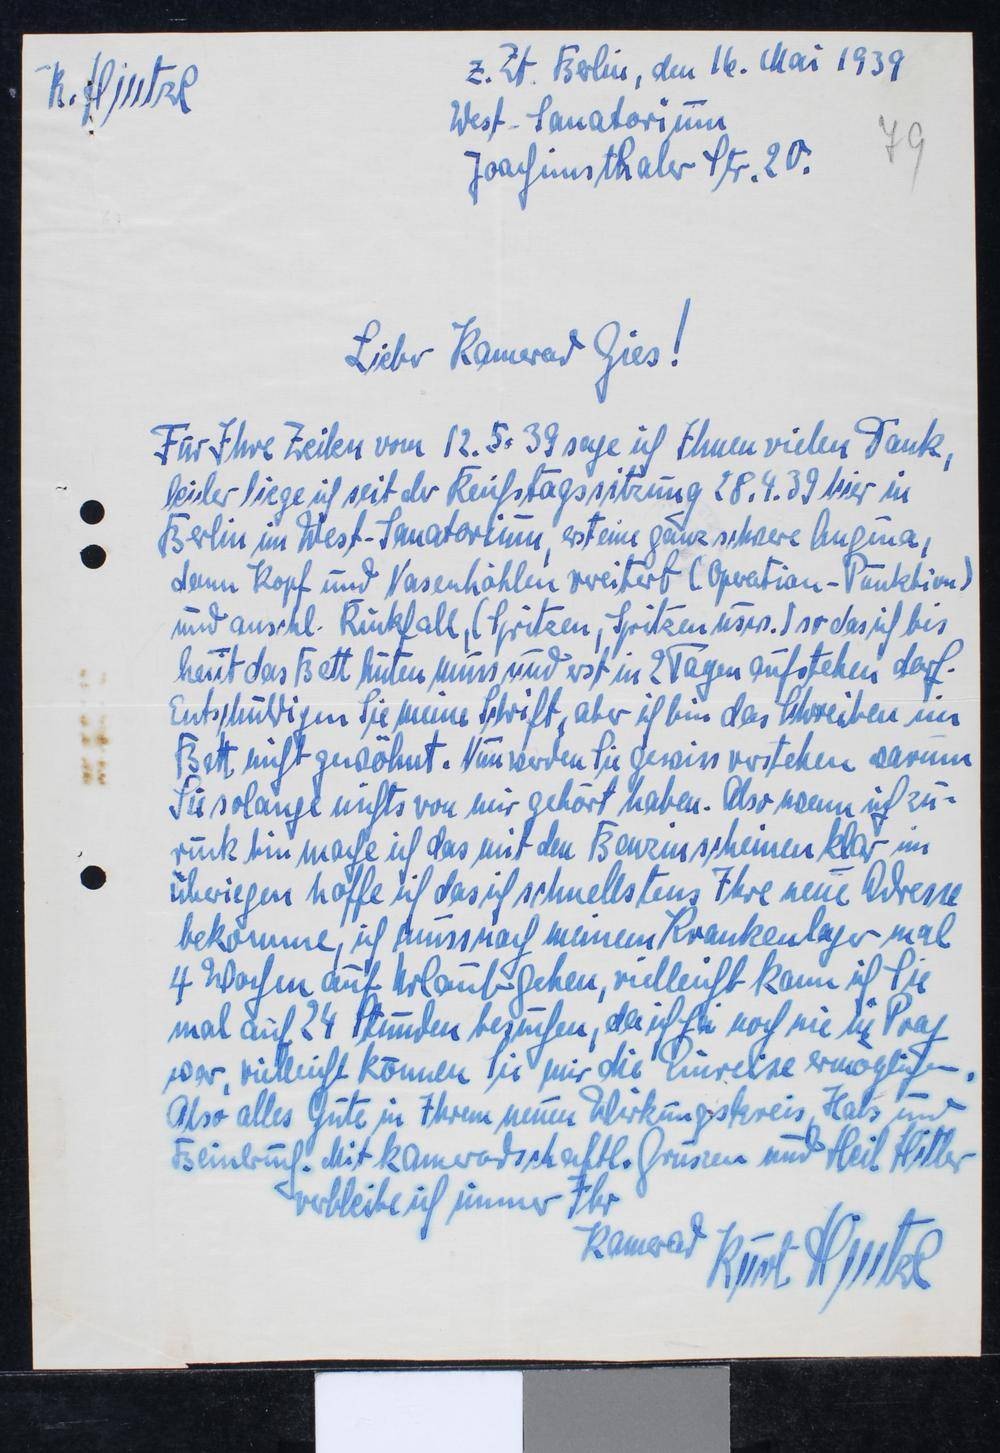 K. Hintze
z. Zt. Berlin, den 16. Mai 1939
West-Sanatorium
Joachimsthaler Str. 20.
79
Lieber Kamerad Gies!
Für Ihre Zeilen vom 12. 5. 39 sage ich Ihnen vielen Dank,
leider liege ich seit der Reichstagssitzung 28.4.39 hier in
Berlin im West-Sanatorium, erst eine ganz schwere Angina,
dann Kopf und Nasenhöhlen vereitert (Operation-Punktion)
und anschl. Rückfall, (Spritzen, Spritzen usw.) so das ich bis
heut das Bett hüten muss und erst in 2 Tagen aufstehen darf.
Entschuldigen Sie meine Schrift, aber ich bin das Schreiben im
Bett nicht gewöhnt. Nun werden Sie gewiss verstehen warum
Sie solange nichts von mir gehört haben. Also wenn ich zu-
rück bin mache ich das mit den Benzinscheinen klar im
überiegen hoffe ich das ich schnellstens Ihre neue Adresse
bekomme, ich muss nach meinem Krankenlager mal
4 Wochen auf Urlaub gehen, vielleicht kann ich Sie
mal auf 24 Stunden besuchen, da ich ja noch nie in Prag
war, vielleicht können Sie mir die Einreise ermöglichen.
Also alles Gute in Ihrem neuen Wirkungskreis, Hals und
Beinbruch. Mit kameradschaftl. Grüssen und Heil Hitler
verbleibe ich immer Ihr
Kamerad Kurt Hintze